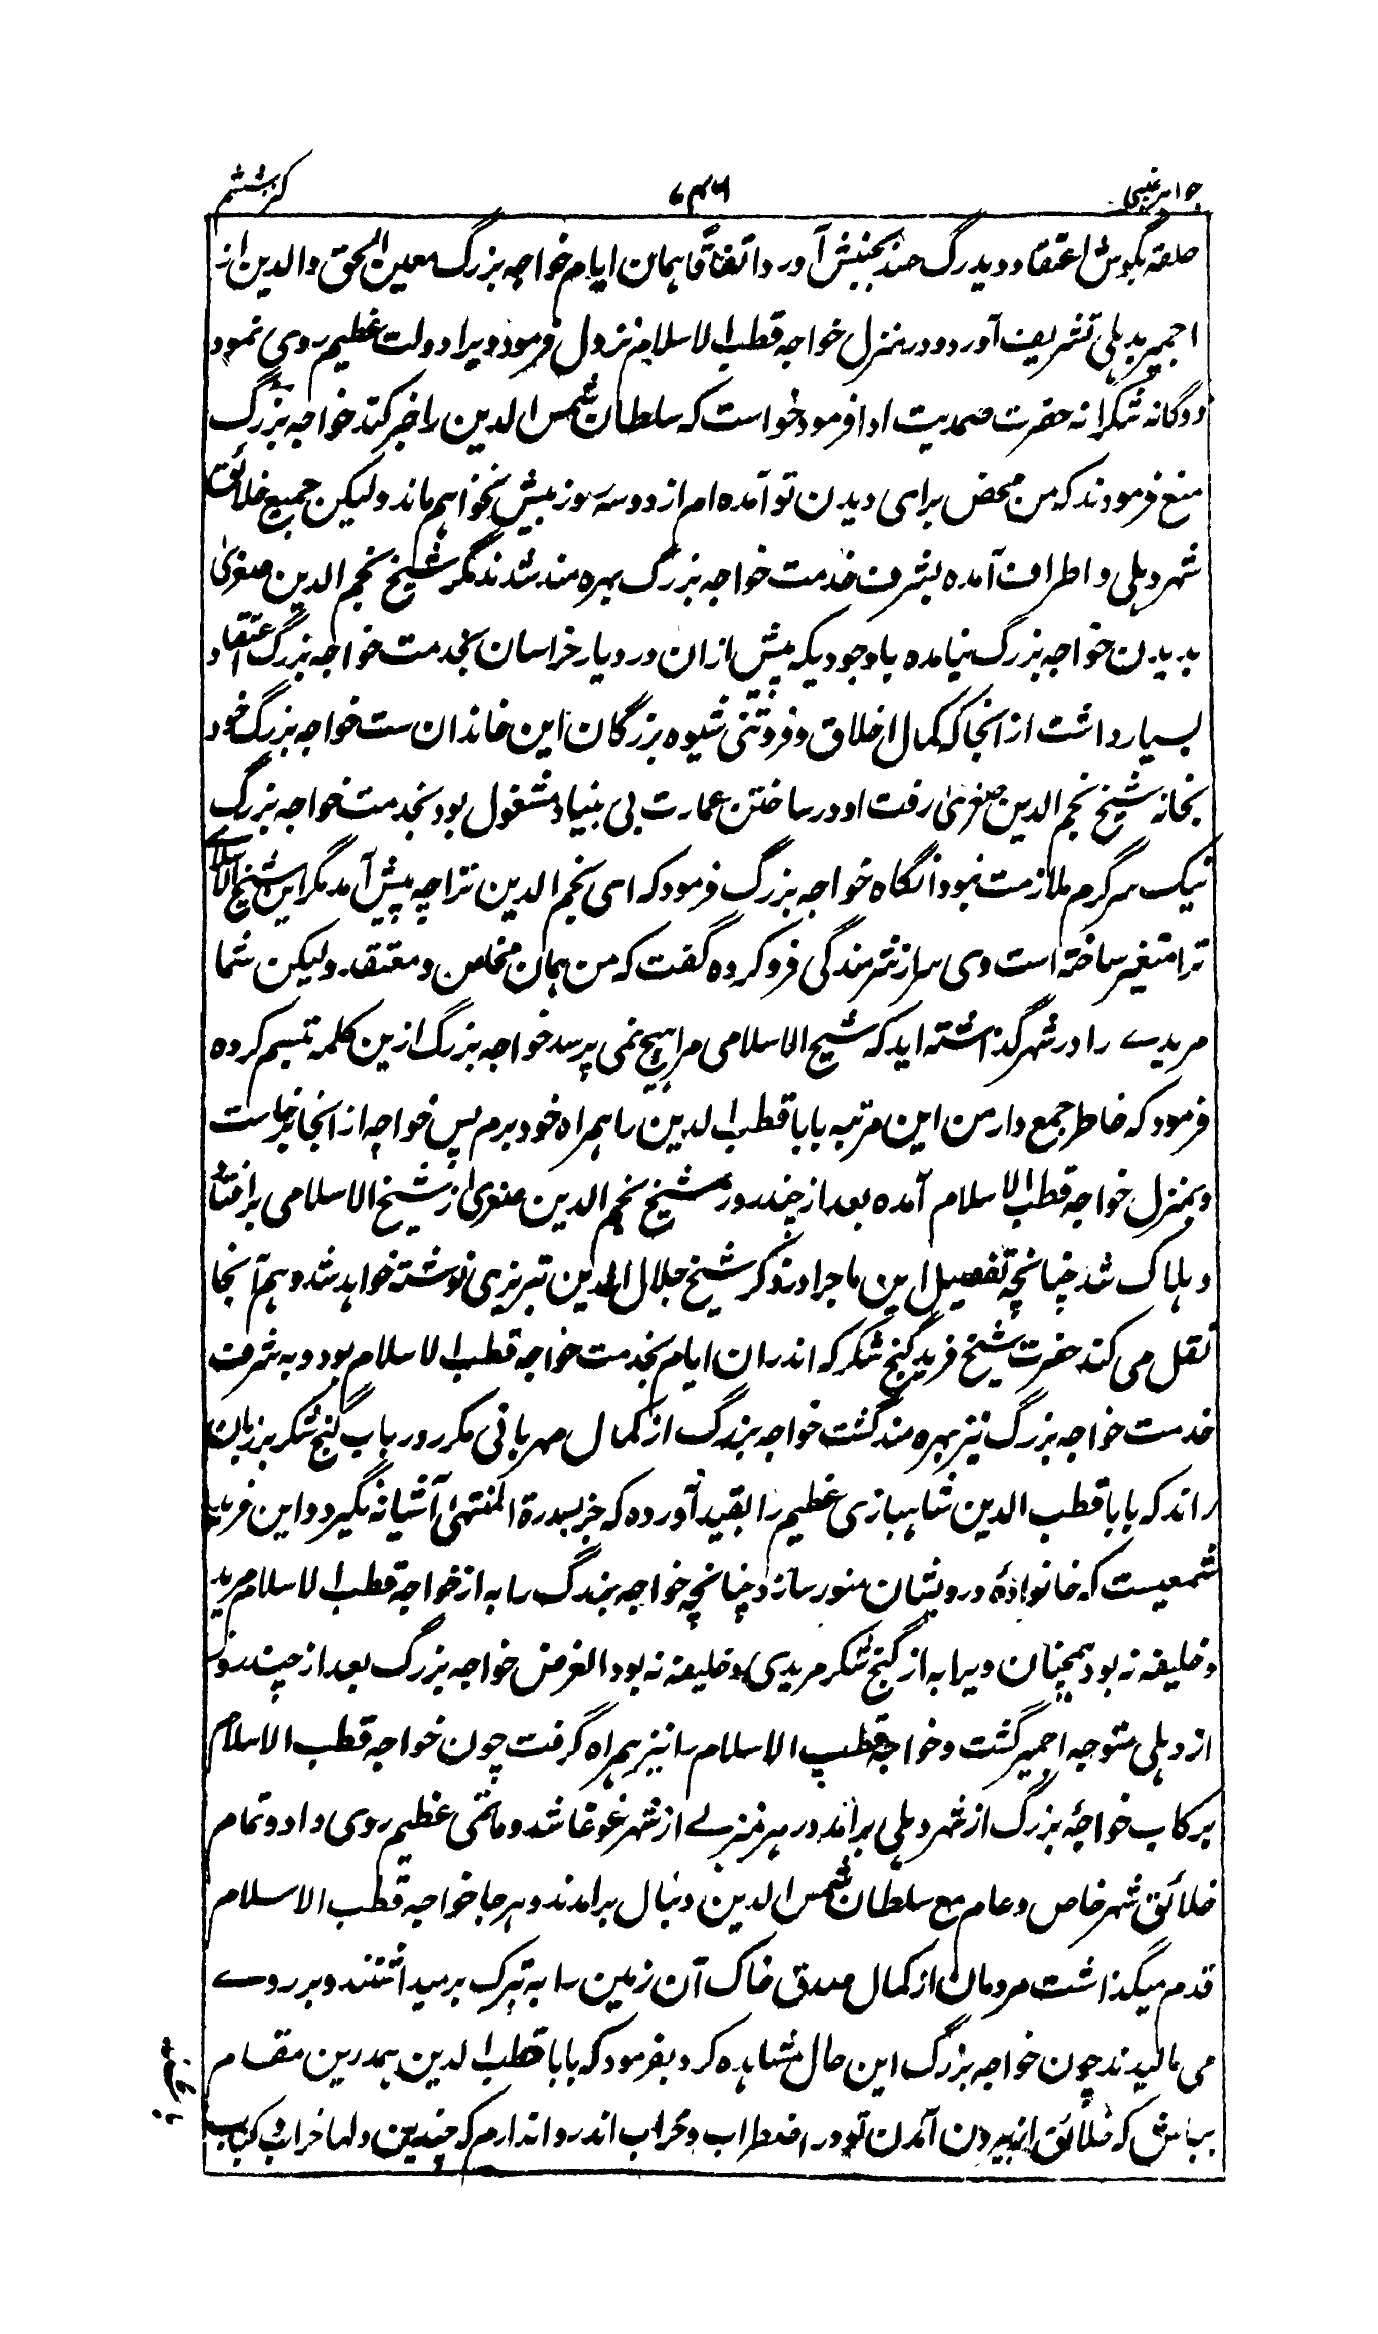 جواهر غیبی ۷۴۶ کنز ششم
حلقه بگوش اعتقاد دویدرگ حسد بجنبش آورد اتفاقًا همان ایام خواجه بزرگ معین الحق والدین از
اجمیر بدهلی تشریف آورد و در منزل خواجه قطب الاسلام نزول فرمود ویرا دولت عظیم روی نمود
دوگانه شکرانه حضرت صمدیت ادا فرمود خواست که سلطان شمس الدین را خبر کند خواجه بزرگ
منع فرمودند که من محض برای دیدن تو آمده ام از دو سه روز بیش نخواهم ماند ولیکن جمیع خلائق
شهر دهلی و اطراف آمده بشرف خدمت خواجه بزرگ بهره مند شدند مگر شیخ نجم الدین صغریٰ
بدیدن خواجه بزرگ نیامده باوجودیکه پیش ازان در دیار خراسان بخدمت خواجه بزرگ اعتقاد
بسیار داشت از انجا که کمال اخلاق و فروتنی شیوه بزرگان این خاندان ست خواجه بزرگ خود
بخانه شیخ نجم الدین صغریٰ رفت او در ساختن عمارت بی بنیاد مشغول بود بخدمت خواجه بزرگ
نیک سرگرم ملازمت نبود انگاه خواجه بزرگ فرمود که ای نجم الدین ترا چه پیش آمد مگر این شیخ الاسلامی
ترا متغیر ساخته است وی سر از شرمندگی فرو کرده گفت که من همان مخلص و معتقد ولیکن شما
مریدے را در شهر گذاشته اید که شیخ الاسلامی مرا هیچ نمی پرسد خواجه بزرگ ازین کلمه تبسم کرده
فرمود که خاطر جمع دار من این مرتبه بابا قطب الدین را همراه خود برم پس خواجه از انجا برخاست
و بمنزل خواجه قطب الاسلام آمده بعد از چند روز شیخ نجم الدین صغریٰ از شیخ الاسلامی برافتاد
و هلاک شد چنانچه تفصیل این ماجرا در ذکر شیخ جلال الدین تبریزی نوشته خواهد شد و هم آنجا
نقل می کند حضرت شیخ فرید گنج شکر که اندران ایام بخدمت خواجه قطب الاسلام بود و به شرف
خدمت خواجه بزرگ نیز بهره مند گشت خواجه بزرگ از کمال مهربانی مکرر در باب گنج شکر بزبان
راند که بابا قطب الدین شاهبازی عظیم را بقید آورده که جز بسدرة المنتهیٰ آشیانه نگیرد و این فرید
شمعیست که خانوادهٔ درویشان منور سازد چنانچه خواجه بزرگ را به از خواجه قطب الاسلام مرید
و خلیفه نه بود همچنان ویرا به از گنج شکر مریدی و خلیفه نه بود الغرض خواجه بزرگ بعد از چند روز
از دهلی متوجه اجمیر گشت و خواجه قطب الاسلام را نیز همراه گرفت چون خواجه قطب الاسلام
برکاب خواجهٔ بزرگ از شهر دهلی برآمد در هر منزلے از شهر غوغا شد و ماتمی عظیم روی داد و تمام
خلائق شهر خاص و عام مع سلطان شمس الدین دنبال برامدند و هر جا خواجه قطب الاسلام
قدم میگذاشت مردمان از کمال صدق خاک آن زمین را به تبرک برمیداشتند و بر روے
می مالیدند چون خواجه بزرگ این حال مشاهده کرد بفرمود که بابا قطب الدین همدرین مقام
بباش که خلائق از بیرون آمدن تو در اضطراب و خراب اند روا ندارم که چندین دلها خراب کباب